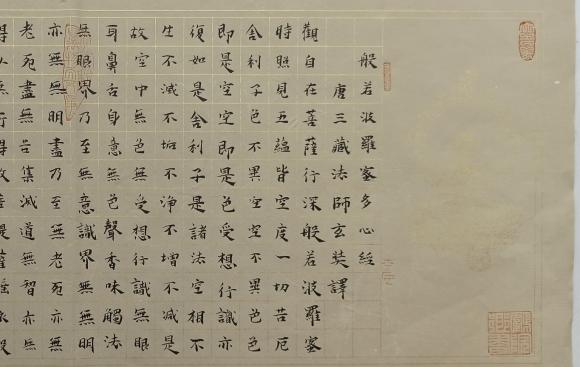 般若波羅蜜多心經
唐三藏法師玄奘譯
觀自在菩薩行深般若波羅蜜
時照見五蘊皆空度一切苦厄
舍利子色不異空空不異色色
即是空空即是色受想行識亦
復如是舍利子是諸法空相不
生不滅不垢不淨不增不減是
故空中無色無受想行識無眼
耳鼻舌身意無色聲香味觸法
無眼界乃至無意識界無無明
亦無無明盡乃至無老死亦無
老死盡無苦集滅道無智亦無